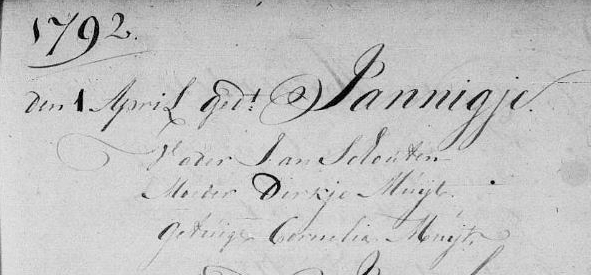 1792.
den 1 April get: Jannigje.
Vader Jan Schouten
Moeder Dirkje Muijt.
getuige Cornelia Muijt.